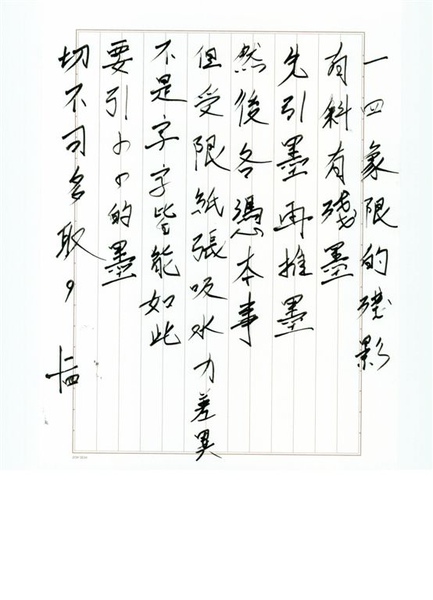 一四象限的殘影
有斜有殘墨
先引墨再推墨
然後各憑本事
但受限紙張吸水力差異
不是字字皆能如此
要引小小的墨
切不可多取，